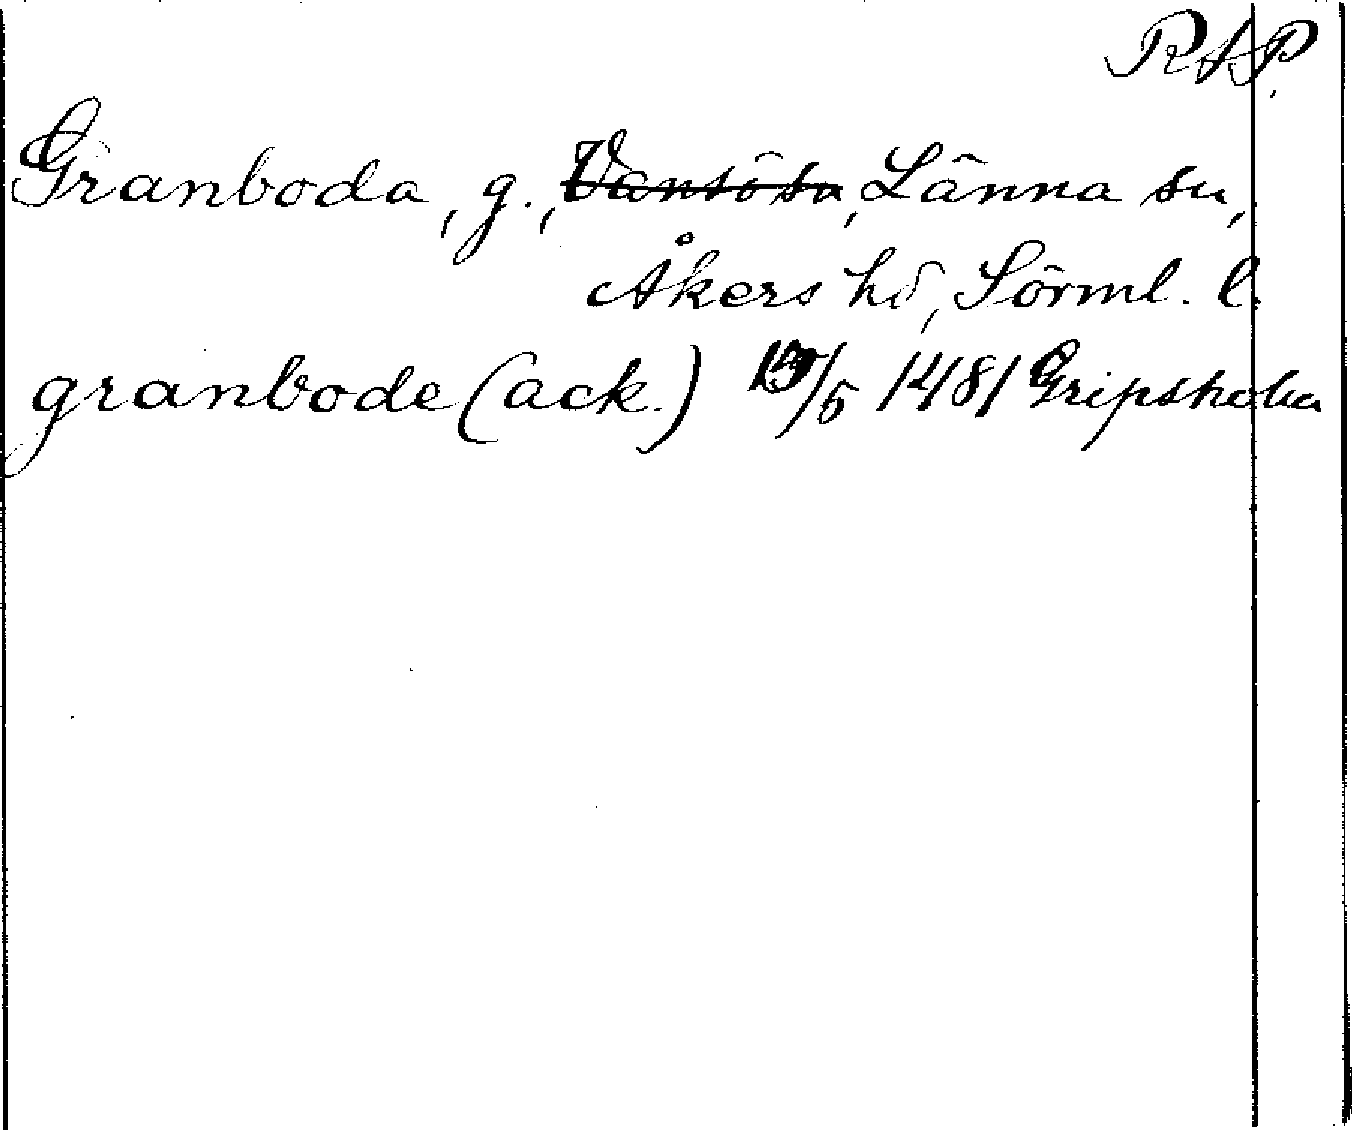 RAP.
Granboda, g., Länna sn,
Åkers hd, Sörml. l.
granbode (ack.) /5 1481 Gripsholm